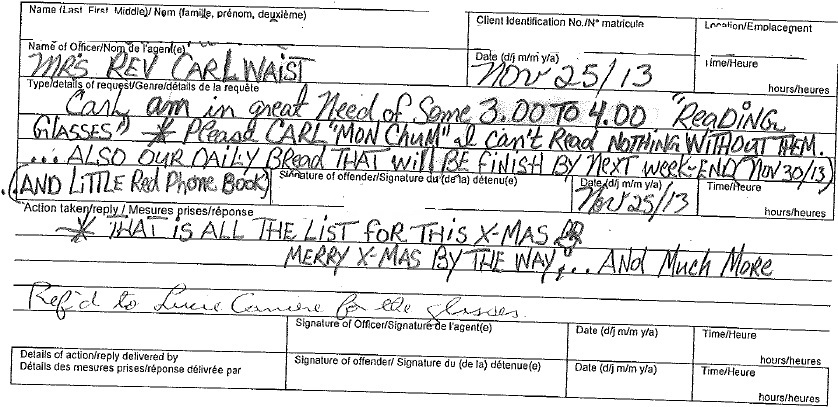 Name (Last, First, Middle)/ Nom (famille, prénom, deuxième)
Client Identification No./N° matricule
Location/Emplacement
Name of Officer/Nom de l'agent(e)
MRS REV CARL WAIST
Date (d/j m/m y/a)
NOV 25/13
Time/Heure
hours/heures
Type/details of request/Genre/détails de la requête
Carl, am in great Need of Some 3.00 TO 4.00 "ReaDING
GLASSES" * Please CARL "MON CHUM" I Can't Read NOTHING WITHOUT THEM.
... ALSO OUR DAILY BREAD THAT will BE FINISH BY Next week-END (NOV 30/13)
..(AND LITTLE Red Phone Book)
Signature of offender/Signature du (de la) détenu(e)
Date (d/j m/m y/a)
Nov 25/13
Time/Heure
hours/heures
Action taken/reply / Mesures prises/réponse
* THAT IS ALL THE LIST FOR THIS X-MAS
MERRY X-MAS BY THE WAY,... AND Much More
Ref'd to Lucie for the glasses.
Signature of Officer/Signature de l'agent(e)
Date (d/j m/m y/a)
Time/Heure
hours/heures
Details of action/reply delivered by
Détails des mesures prises/réponse délivrée par
Signature of offender/ Signature du (de la) détenue(e)
Date (d/j m/m y/a)
Time/Heure
hours/heures